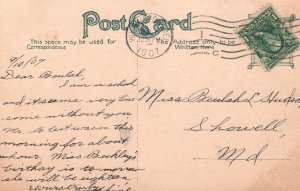 Post Card
This space may be used for
Correspondence
The Address only to be
Written Here
1907
9/10/07
Dear Beulah,
I am in school
and it seems very lone
some without you
Mr. B last us on this
morning for about
hour. Miss Beuhley's
birthday is to morrow
she will be eighteen.
Miss Beulah L. Hudson
Showell,
Md.